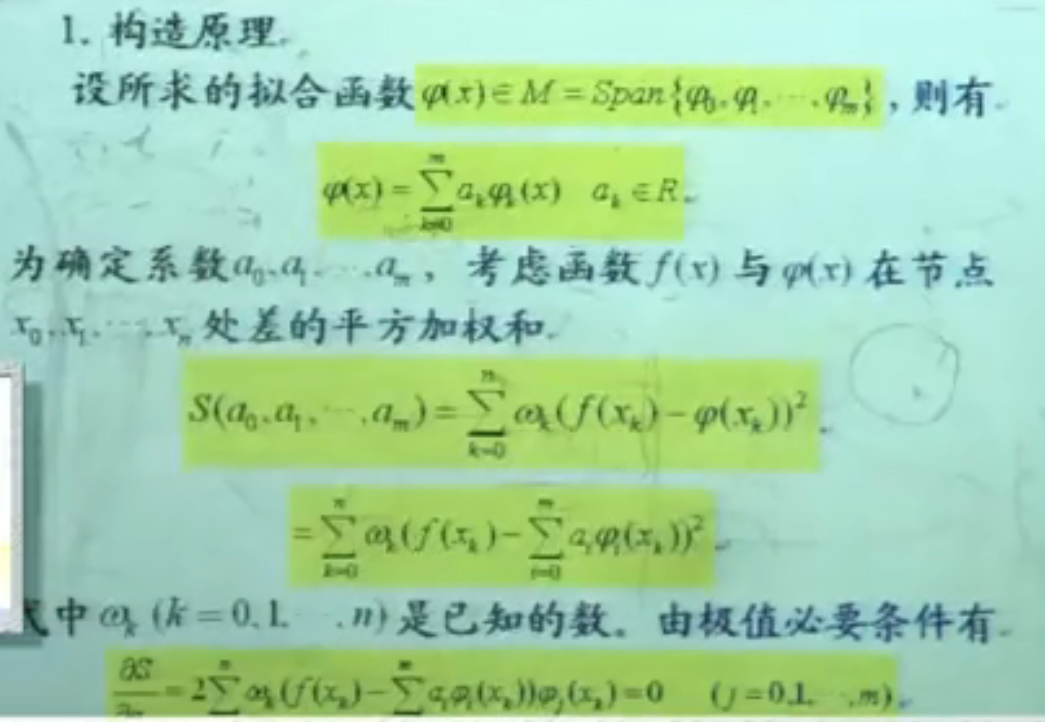 1. 构造原理
设所求的拟合函数φ(x)∈M=Span{φ₀,φ₁,…,φₘ},则有
φ(x)=∑_{k=0}^{m}aₖφₖ(x) aₖ∈R
为确定系数a₀,a₁,…,aₘ,考虑函数f(x)与φ(x)在节点
x₀,x₁,…,xₙ处差的平方加权和
S(a₀,a₁,…,aₘ)=∑_{k=0}^{n}ωₖ(f(xₖ)-φ(xₖ))²
=∑_{k=0}^{n}ωₖ(f(xₖ)-∑_{i=0}^{m}aᵢφᵢ(xₖ))²
式中ωₖ(k=0,1,…,n)是已知的数。由极值必要条件有
∂S/∂aⱼ=2∑^{n}ωₖ(f(xₖ)-∑^{m}aᵢφᵢ(xₖ))φⱼ(xₖ)=0 (j=0,1,…,m)